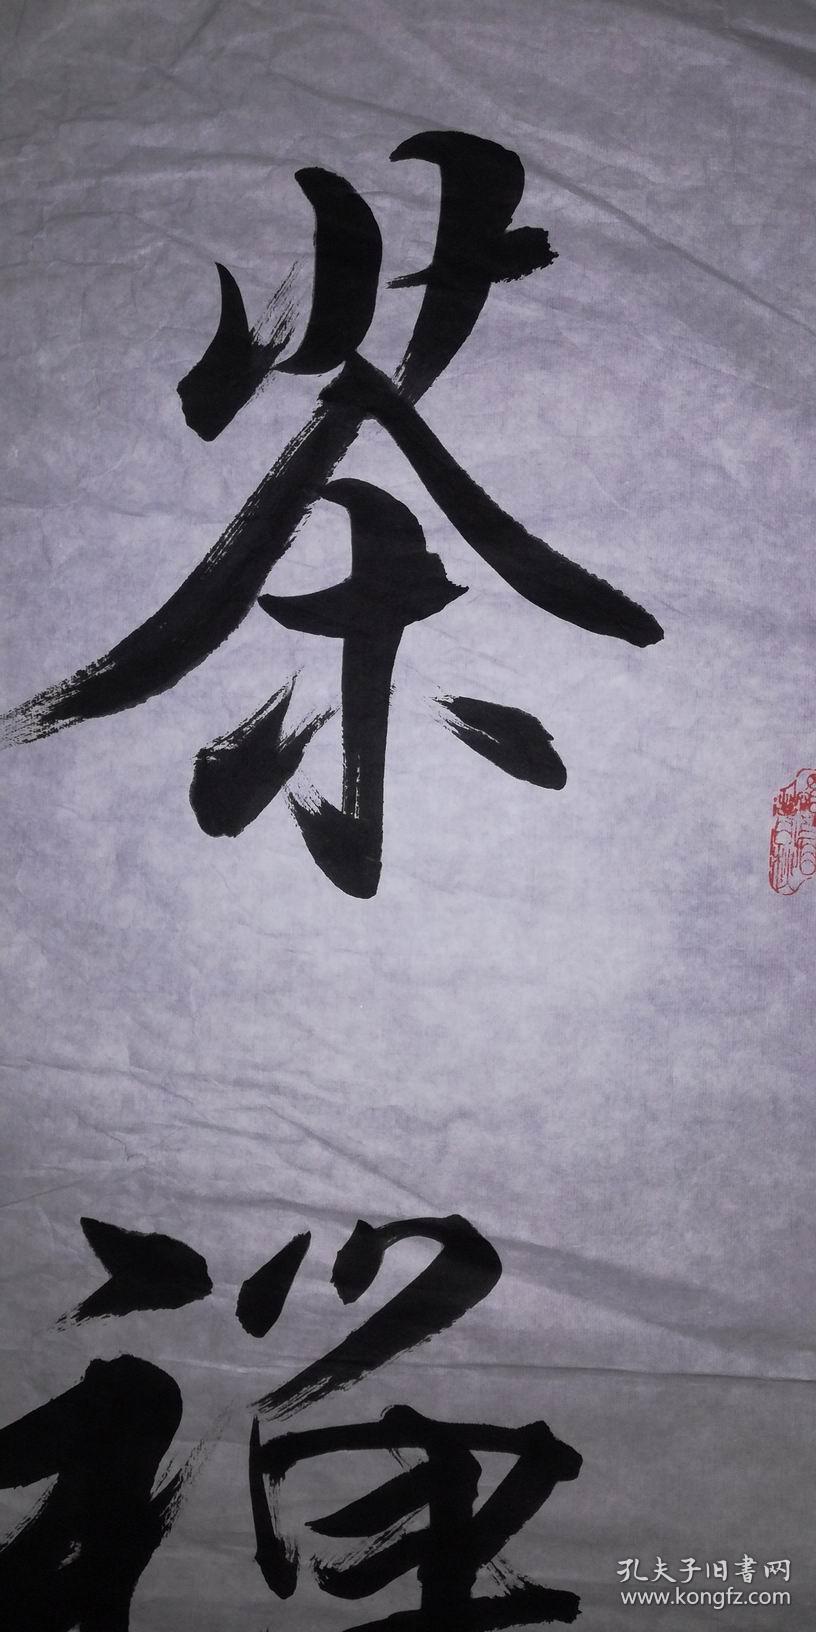 茶
禅
孔夫子旧書网
www.kongfz.com